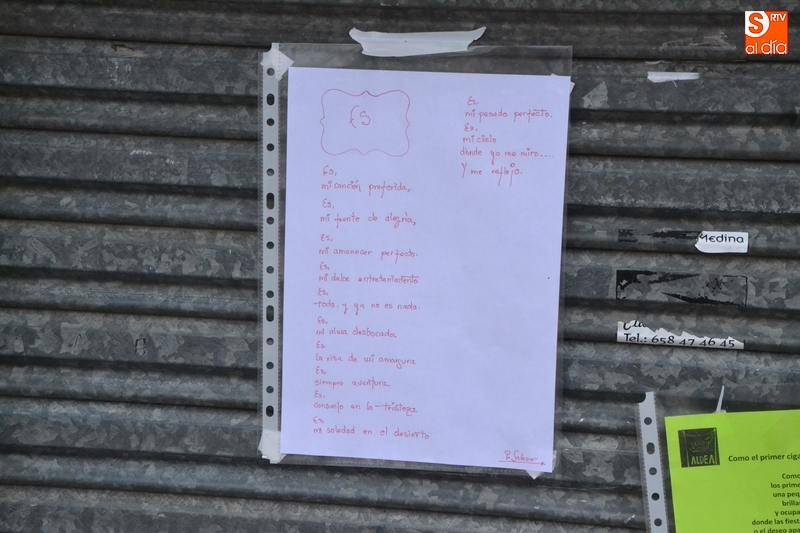 S RTV
al día
ES
Es,
mi canción preferida,
Es,
mi fuente de alegría,
Es,
mi amanecer perfecto.
Es,
mi dulce entretenimiento
Es,
todo y ya no es nada.
Es,
mi alma desbocada
Es
la risa de mi amargura
Es
siempre aventura
Es,
consuelo en la tristeza
Es
mi soledad en el desierto
Es,
mi pasado perfecto.
Es,
mi cielo
donde yo me miro....
Y me reflejo.
Medina
Tel.: 658 47 46 45
ALDEA
Como el primer ciga
Como
los prime
una peq
brilla
y ocupa
donde las fiest
o el deseo apa